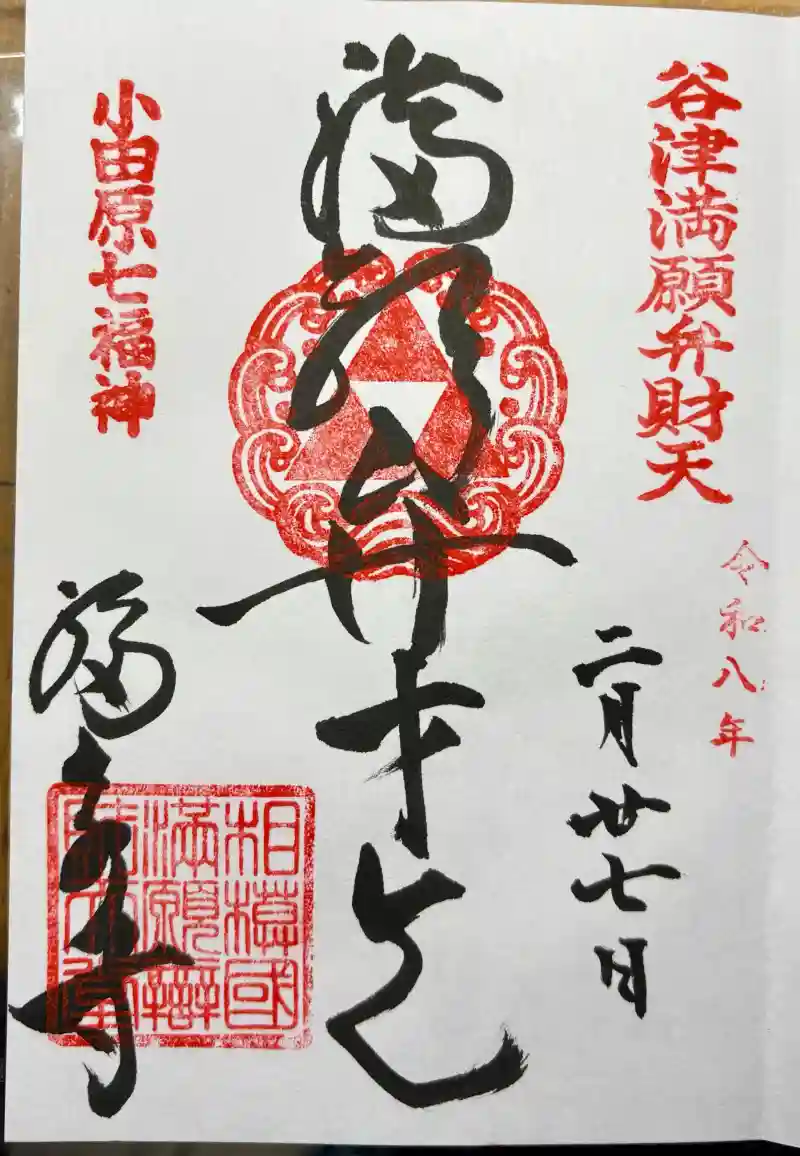 谷津満願弁財天
令和八年
二月廿七日
満願弁才天
小田原七福神
福泉寺
相模國
満願辯
財天